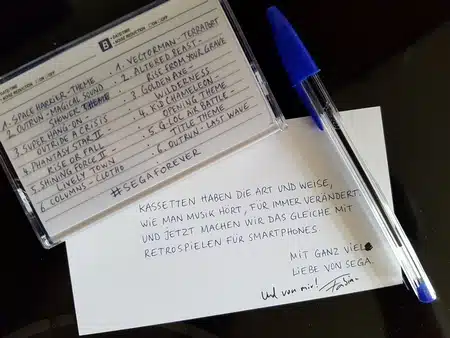 B
1. SPACE HARRIER - THEME
2. OUTRUN - MAGICAL SOUND
SHOWER THEME
3. SUPER HANG ON -
OUTSIDE A CRISIS
4. PHANTASY STAR II -
RISE OR FALL
5. SHINING FORCE II -
LIVELY TOWN
6. COLUMNS - CLOTHO
1. VECTORMAN - TERRAPORT
2. ALTERED BEAST -
RISE FROM YOUR GRAVE
3 GOLDEN AXE -
WILDERNESS
4. KID CHAMELEON -
OPENING THEME
5. G-LOC AIR BATTLE -
TITLE THEME
6. OUTRUN - LAST WAVE
#SEGAFOREVER
KASSETTEN HABEN DIE ART UND WEISE,
WIE MAN MUSIK HÖRT, FÜR IMMER VERÄNDERT
UND JETZT MACHEN WIR DAS GLEICHE MIT
RETROSPIELEN FÜR SMARTPHONES
MIT GANZ VIEL
LIEBE VON SEGA.
Und von mir!